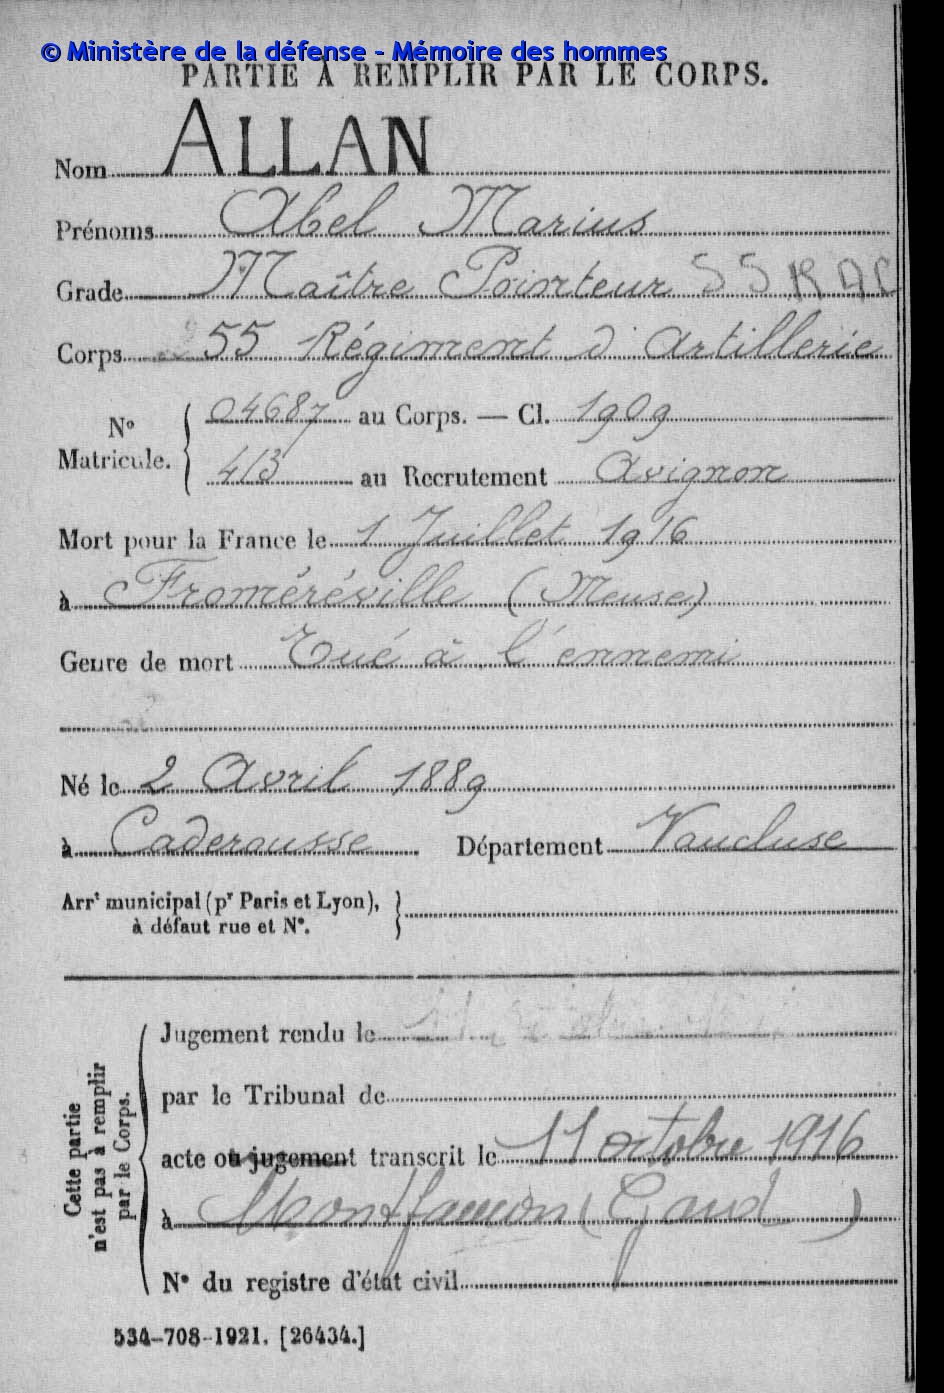 © Ministère de la défense - Mémoire des hommes
PARTIE À REMPLIR PAR LE CORPS.
Nom ALLAN
Prénoms Abel Marius
Grade Maître Pointeur 55 RAC
Corps 55 Régiment d'Artillerie
N° Matricule. 04687 au Corps. — Cl. 1909
413 au Recrutement Avignon
Mort pour la France le 1 Juillet 1916
à Froméréville (Meuse)
Genre de mort Tué à l'ennemi
Né le 2 Avril 1889
à Caderousse Département Vaucluse
Arrt municipal (pr Paris et Lyon),
à défaut rue et N°.
Cette partie
n'est pas à remplir
par le Corps.
Jugement rendu le
par le Tribunal de
acte ou jugement transcrit le 11 octobre 1916
à Montfaucon (Gard)
N° du registre d'état civil
534-708-1921. [26434.]